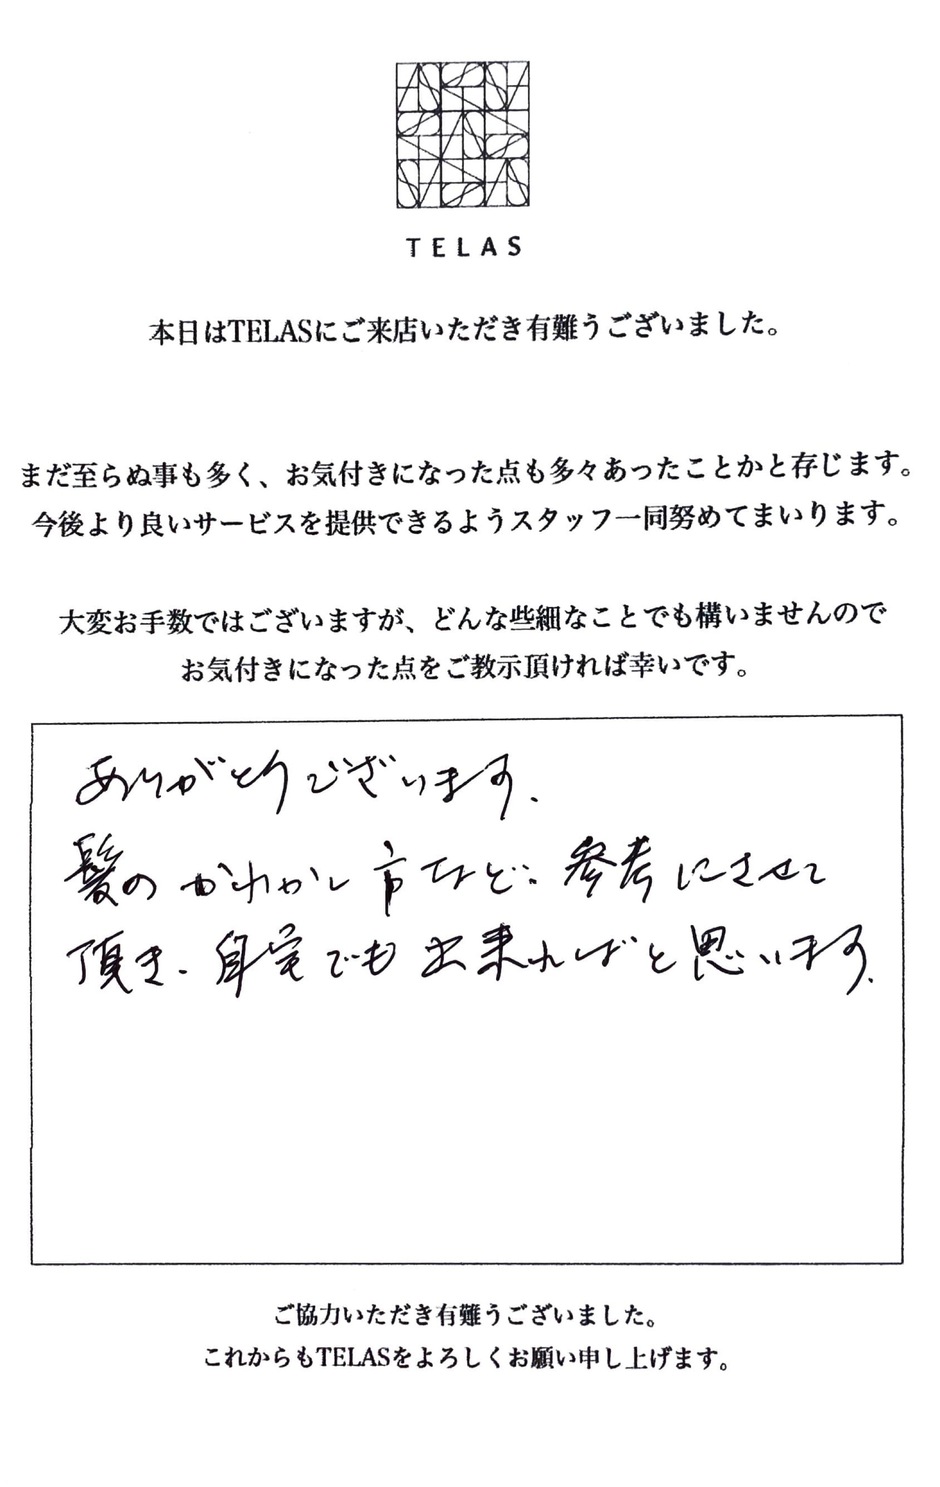 TELAS
本日はTELASにご来店いただき有難うございました。
まだ至らぬ事も多く、お気付きになった点も多々あったことかと存じます。
今後より良いサービスを提供できるようスタッフ一同努めてまいります。
大変お手数ではございますが、どんな些細なことでも構いませんので
お気付きになった点をご教示頂ければ幸いです。
ありがとうございます.
髪の かわかし方など. 参考にさせて
頂き. 自宅でも出来ればと思います.
ご協力いただき有難うございました。
これからもTELASをよろしくお願い申し上げます。